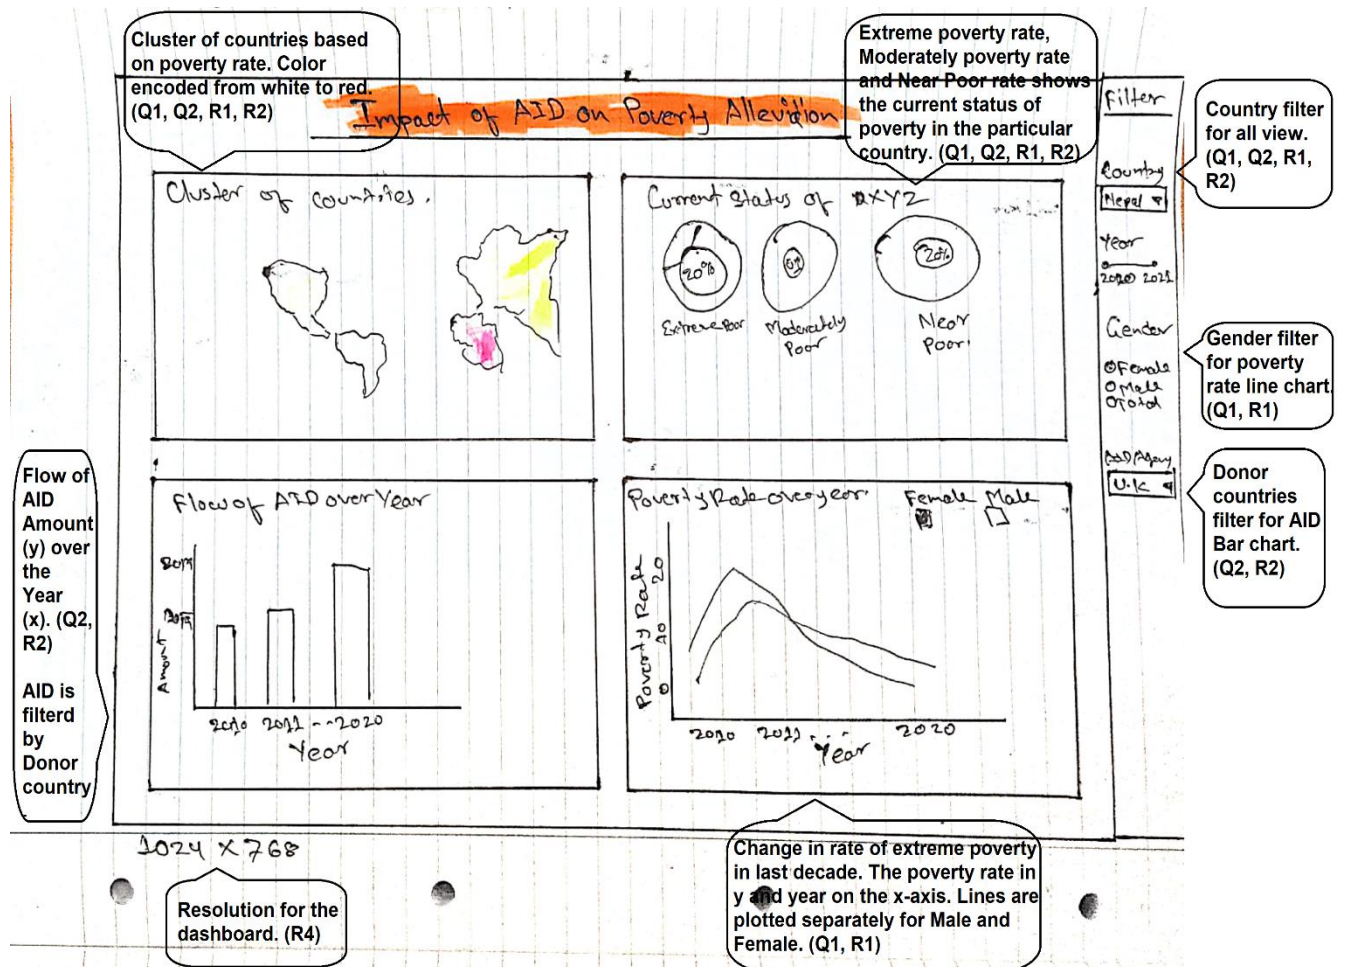 Cluster of countries based
on poverty rate. Color
encoded from white to red.
(Q1, Q2, R1, R2)
Extreme poverty rate,
Moderately poverty rate
and Near Poor rate shows
the current status of
poverty in the particular
country. (Q1, Q2, R1, R2)
Impact of AID on Poverty Alleviation
Filter
Country filter
for all view.
(Q1, Q2, R1,
R2)
Country
Nepal
Year
2010 2021
Gender
Female
Male
Total
Gender filter
for poverty
rate line chart.
(Q1, R1)
AID Agency
U.K
Donor
countries
filter for AID
Bar chart.
(Q2, R2)
Cluster of countries.
Current Status of XYZ
20%
20%
Extreme Poor
Moderately
Poor
Near
Poor.
Flow of
AID
Amount
(y) over
the
Year
(x). (Q2,
R2)
AID is
filterd
by
Donor
country
Flow of AID over Year
Amount
2010 2011 - - 2020
Year
Poverty Rate over year.
Female Male
Poverty Rate
20
10
0
2010 2011 . . . 2020
Year
1024 X 768
Resolution for the
dashboard. (R4)
Change in rate of extreme poverty
in last decade. The poverty rate in
y and year on the x-axis. Lines are
plotted separately for Male and
Female. (Q1, R1)